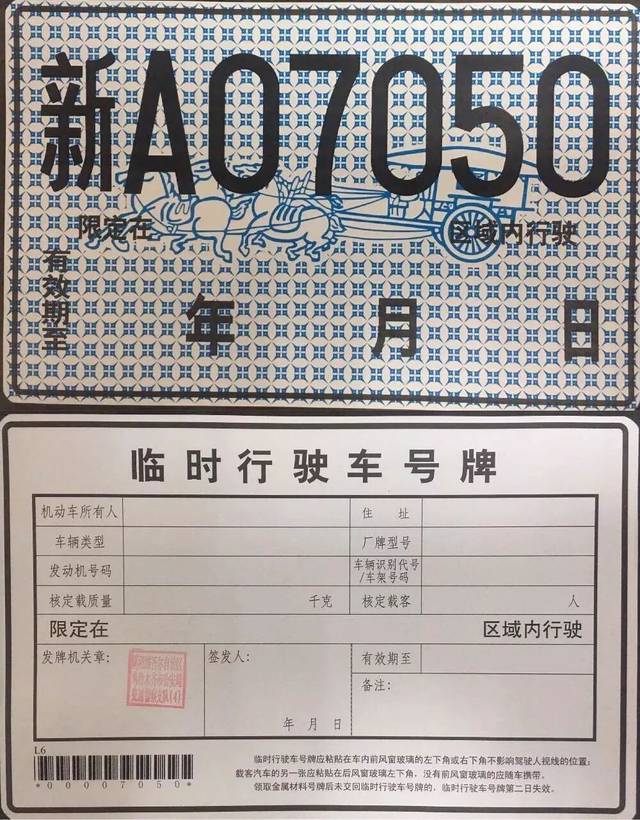 新A07050
限定在 区域内行驶
有效期至
年 月 日
临时行驶车号牌
机动车所有人 住 址
车辆类型 厂牌型号
发动机号码 车辆识别代号
/车架号码
核定载质量 千克 核定载客 人
限定在 区域内行驶
发牌机关章: 签发人: 有效期至
备注:
年 月 日
L6
*00007050*
临时行驶车号牌应粘贴在车内前风窗玻璃的左下角或右下角不影响驾驶人视线的位置;
载客汽车的另一张应粘贴在后风窗玻璃左下角，没有前风窗玻璃的应随车携带。
领取金属材料号牌后未交回临时行驶车号牌的，临时行驶车号牌第二日失效。